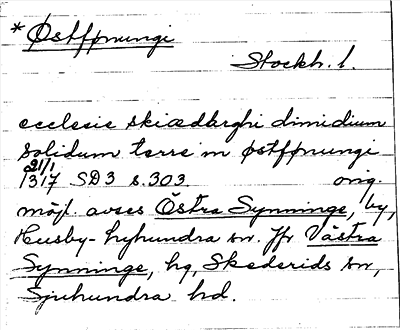 * Østfønungi
Stockh. l.
ecclesie skiædarghi dimidium
solidum terre in østfønungi
21/1
1317 SD3 s. 303. orig.
möjl. avses Östra Synninge, by,
Husby-Lyhundra sn. Jfr Västra
Synninge, hg, Skederids sn,
Sjuhundra hd.